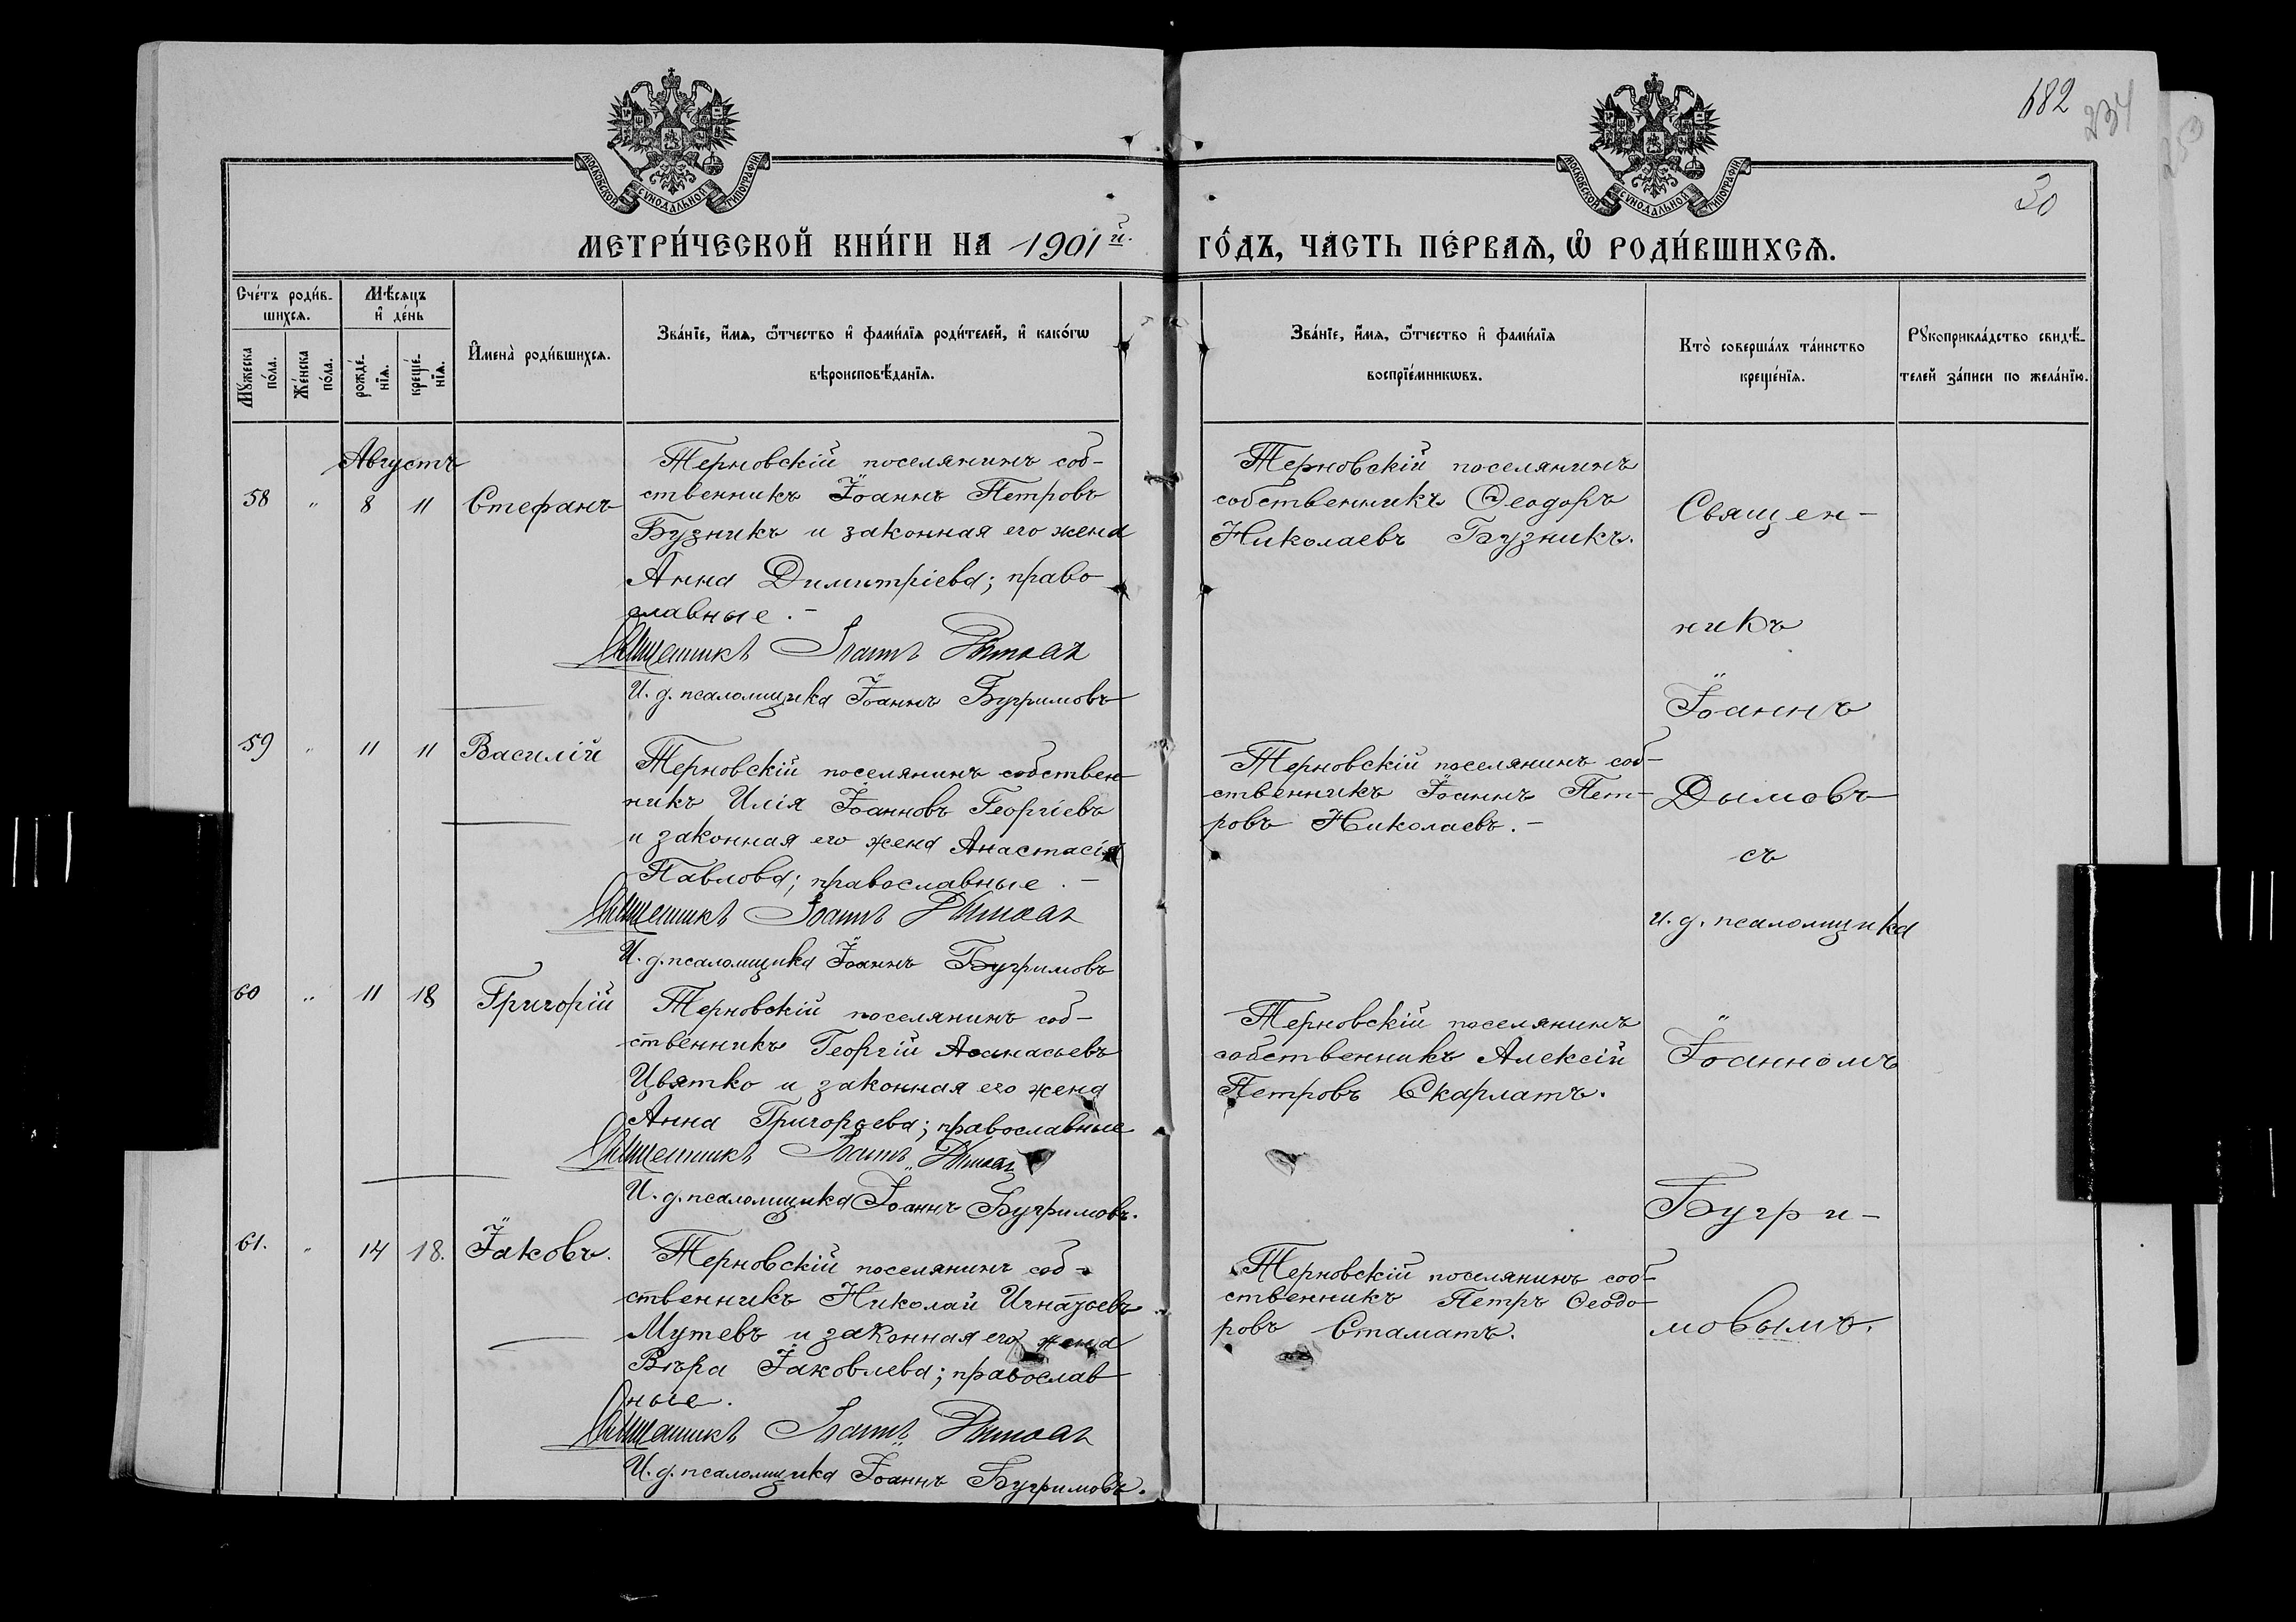 682
234
30
МОСКОВСКОЙ СѴНОДАЛЬНОЙ ТИПОГРАФІИ
МОСКОВСКОЙ СѴНОДАЛЬНОЙ ТИПОГРАФІИ
МЕТРИ́ЧЕСКОЙ КНИ́ГИ НА 1901й.
ГО́ДЪ, ЧА́СТЬ ПЕ́РВАѦ, Ѡ РОДИ́ВШИХСѦ.
Сче́тъ роди́в-
шихсѧ.
Мꙋ́жеска
по́ла.
Же́нска
по́ла.
Мѣ́сѧцъ
и҆ де́нь
рожде́-
нїѧ.
креще́-
нїѧ.
И҆мена̀ роди́вшихсѧ.
Зва́нїе, и҆́мѧ, ѻ҆́тчество и҆ фами́лїѧ роди́телей, и҆ како́гѡ
вѣроисповѣ́данїѧ.
Зва́нїе, и҆́мѧ, ѻ҆́тчество и҆ фами́лїѧ
воспрїе́мникѡвъ.
Кто̀ соверша́лъ та́инство
креще́нїѧ.
Рꙋкоприкла́дство свидѣ́-
телей за́писи по жела́нїю.
Августъ
58 " 8 11 Стефанъ
Терновскій поселянинъ соб-
ственникъ Іоаннъ Петровъ
Бузникъ и законная его жена
Анна Димитріева; право
славные. -
Священникъ Іоаннъ Дымовъ
И. д. псаломщика Іоаннъ Бугримовъ
Терновскій поселянинъ
собственникъ Ѳеодоръ
Николаевъ Бузникъ.
59 " 11 11 Василій
Терновскій поселянинъ собствен-
никъ Илія Іоанновъ Георгіевъ
и законная его жена Анастасія
Павлова; православные. -
Священникъ Іоаннъ Дымовъ
И. д. псаломщика Іоаннъ Бугримовъ
Терновскій поселянинъ соб-
ственникъ Іоаннъ Пет-
ровъ Николаевъ. -
60 " 11 18 Григорій
Терновскій поселянинъ соб-
ственникъ Георгій Аѳанасьевъ
Цвятко и законная его жена
Анна Григорьева; православные
Священникъ Іоаннъ Дымовъ
И. д. псаломщика Іоаннъ Бугримовъ.
Терновскій поселянинъ
собственникъ Алексій
Петровъ Скарлатъ.
61. " 14 18. Іаковъ.
Терновскій поселянинъ соб-
ственникъ Николай Игнатьевъ
Мутевъ и законная его жена
Вѣра Іаковлева; православ
ные.
Священникъ Іоаннъ Дымовъ
И. д. псаломщика Іоаннъ Бугримовъ.
Терновскій поселянинъ соб-
ственникъ Петръ Ѳеодо-
ровъ Стаматъ.
Священ-
никъ
Іоаннъ
Дымовъ
съ
и. д. псаломщика
Іоанномъ
Бугри-
мовымъ.